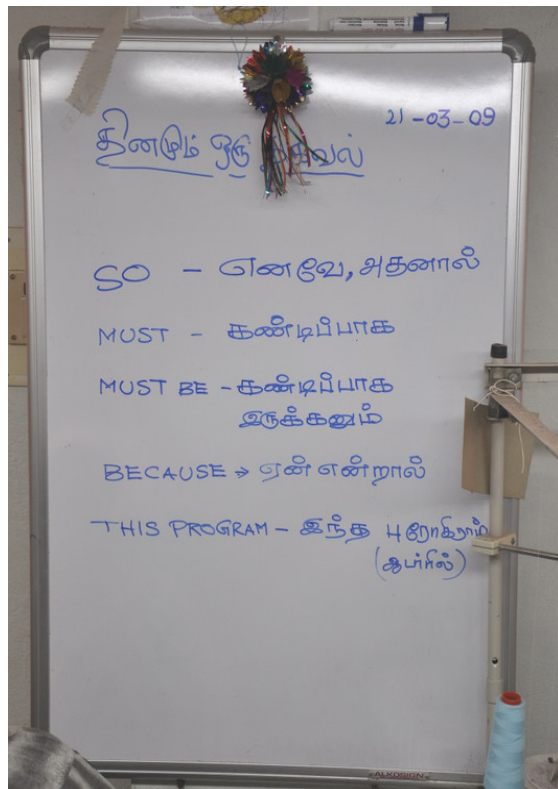 21-03-09
தினமும் ஒரு தகவல்
SO - எனவே, அதனால்
MUST - கண்டிப்பாக
MUST BE - கண்டிப்பாக
இருக்கனும்
BECAUSE → ஏன் என்றால்
THIS PROGRAM - இந்த புரோகிராம்
ALKOSIGN